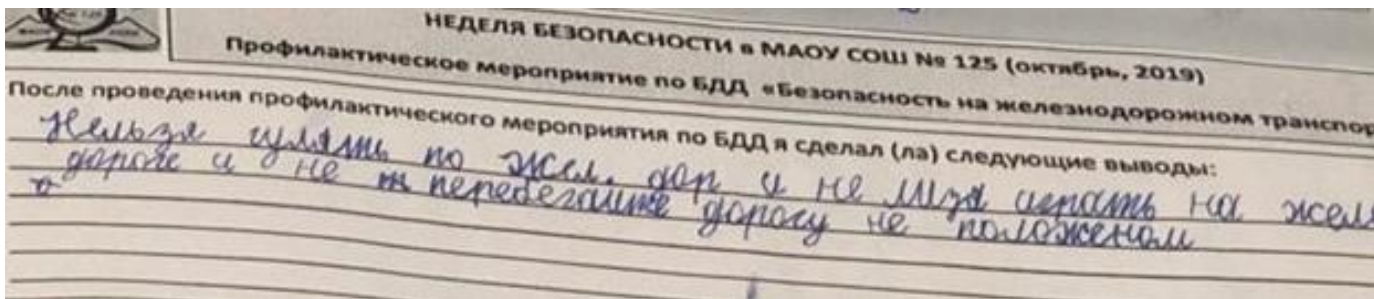 НЕДЕЛЯ БЕЗОПАСНОСТИ в МАОУ СОШ № 125 (октябрь, 2019)
Профилактическое мероприятие по БДД «Безопасность на железнодорожном транспор
После проведения профилактического мероприятия по БДД я сделал (ла) следующие выводы:
Нельзя гулять по жел. дор и не льзя играть на желе
дороге и не перебегайте дорогу не положеном